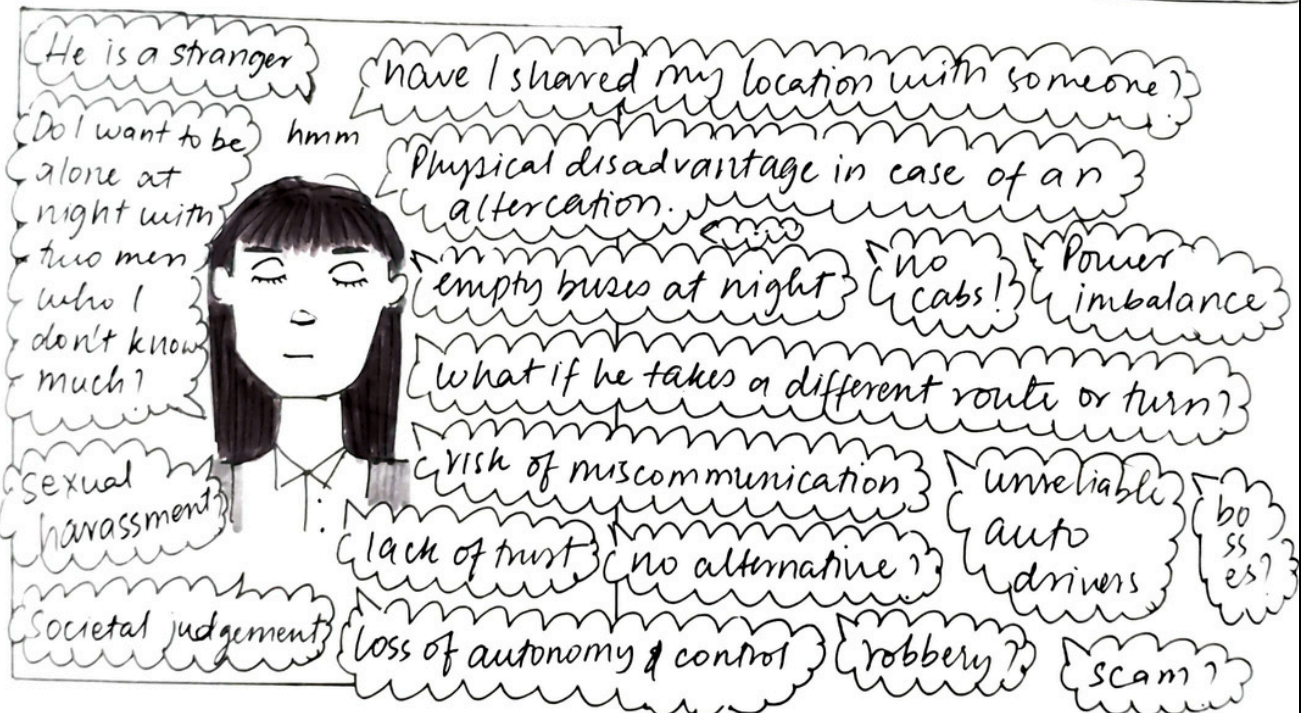 He is a stranger
Do I want to be
alone at
night with
two men
who I
don't know
much?
sexual
harassment
Societal judgement
hmm
have I shared my location with someone?
Physical disadvantage in case of an
altercation.
empty buses at night
no
cabs!
Power
imbalance
What if he takes a different route or turn?
risk of miscommunication
unreliable
auto
drivers
bo
ss
es?
lack of trust
no alternative?
loss of autonomy & control
robbery?
scam?